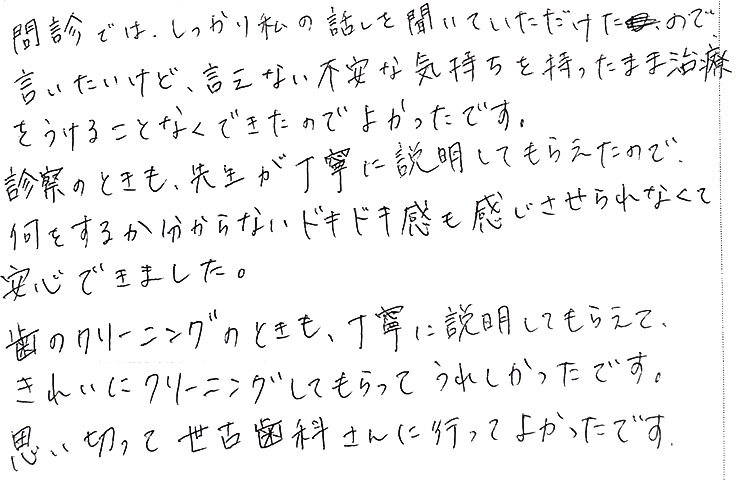 問診では、しっかり私の話しを聞いていただけたので
言いたいけど、言えない不安な気持ちを持ったまま治療
をうけることなくできたのでよかったです。
診察のときも、先生が丁寧に説明してもらえたので、
何をするか分からないドキドキ感も感じさせられなくて
安心できました。
歯のクリーニングのときも、丁寧に説明してもらえて、
きれいにクリーニングしてもらってうれしかったです。
思い切って世古歯科さんに行ってよかったです。